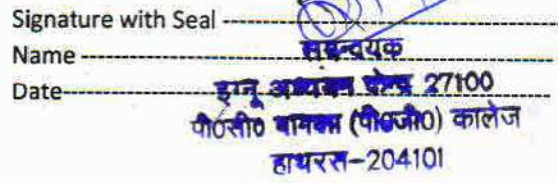 Signature with Seal
Name
समन्वयक
Date
इग्नू अध्ययन केन्द्र 27100
पी०सी० बागला (पी०जी०) कालेज
हाथरस-204101